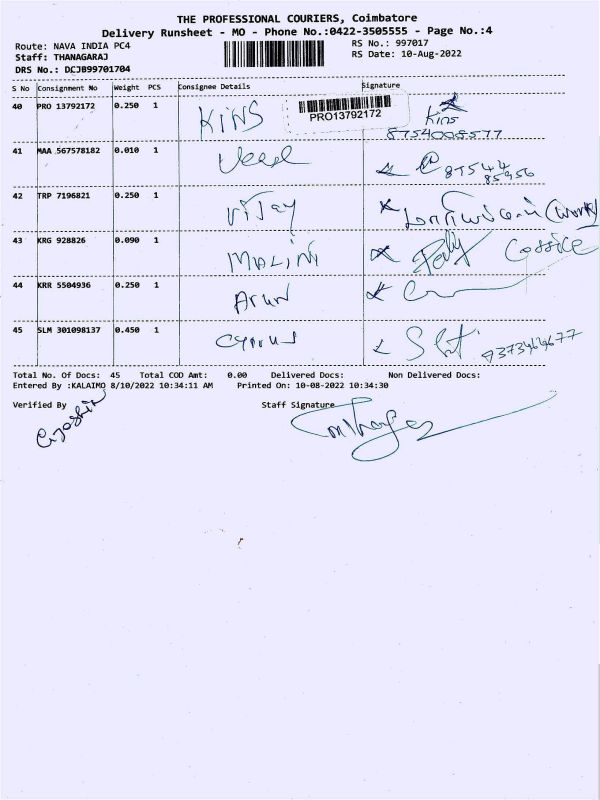 THE PROFESSIONAL COURIERS, Coimbatore
Delivery Runsheet - MO - Phone No.:0422-3505555 - Page No.:4
Route: NAVA INDIA PC4 RS No.: 997017
Staff: THANAGARAJ RS Date: 10-Aug-2022
DRS No.: DCJB99701704
S No Consignment No Weight PCS Consignee Details Signature
40 PRO 13792172 0.250 1 KINS PRO13792172 Kins
8754008577
41 MAA 567578182 0.010 1 87544
85956
42 TRP 7196821 0.250 1 Vijay (Work)
43 KRG 928826 0.090 1 MALINI
44 KRR 5504936 0.250 1 Arun
45 SLM 301098137 0.450 1 Cyprus
Total No. Of Docs: 45 Total COD Amt: 0.00 Delivered Docs: Non Delivered Docs:
Entered By :KALAIMO 8/10/2022 10:34:11 AM Printed On: 10-08-2022 10:34:30
Verified By Staff Signature